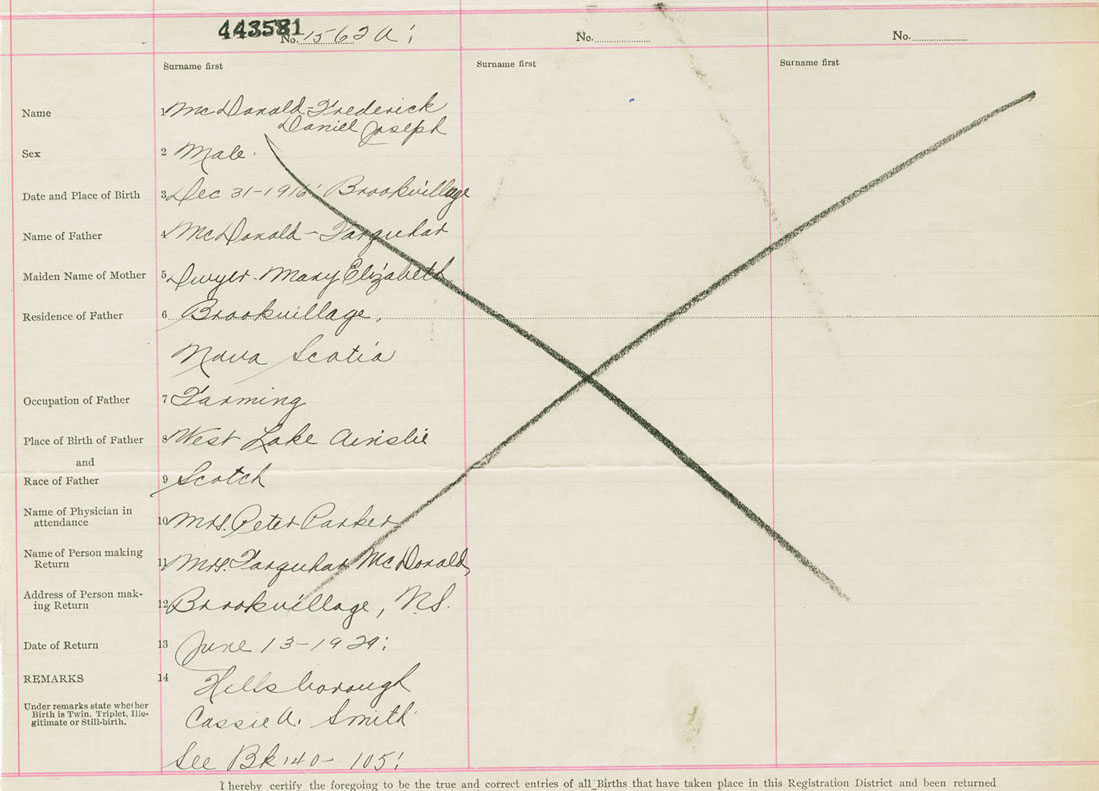 443581
No. 1562 A No. No.
Surname first Surname first Surname first
Name 1 McDonald - Frederick
Daniel Joseph
Sex 2 Male.
Date and Place of Birth 3 Dec 31-1916 Brookvillage
Name of Father 4 McDonald - Farquhar
Maiden Name of Mother 5 Dwyer - Mary Elizabeth
Residence of Father 6 Brookvillage,
Nova Scotia
Occupation of Father 7 Farming
Place of Birth of Father 8 West Lake Ainslie
and
Race of Father 9 Scotch
Name of Physician in
attendance 10 Mrs. Peter Parker
Name of Person making
Return 11 Mrs. Farquhar McDonald,
Address of Person mak-
ing Return 12 Brookvillage, N.S.
Date of Return 13 June 13-1929
REMARKS 14 Hillsborough
Under remarks state whether
Birth is Twin, Triplet, Ille-
gitimate or Still-birth.
Cassie A. Smith
See Bk 140 - 105
I hereby certify the foregoing to be the true and correct entries of all Births that have taken place in this Registration District and been returned